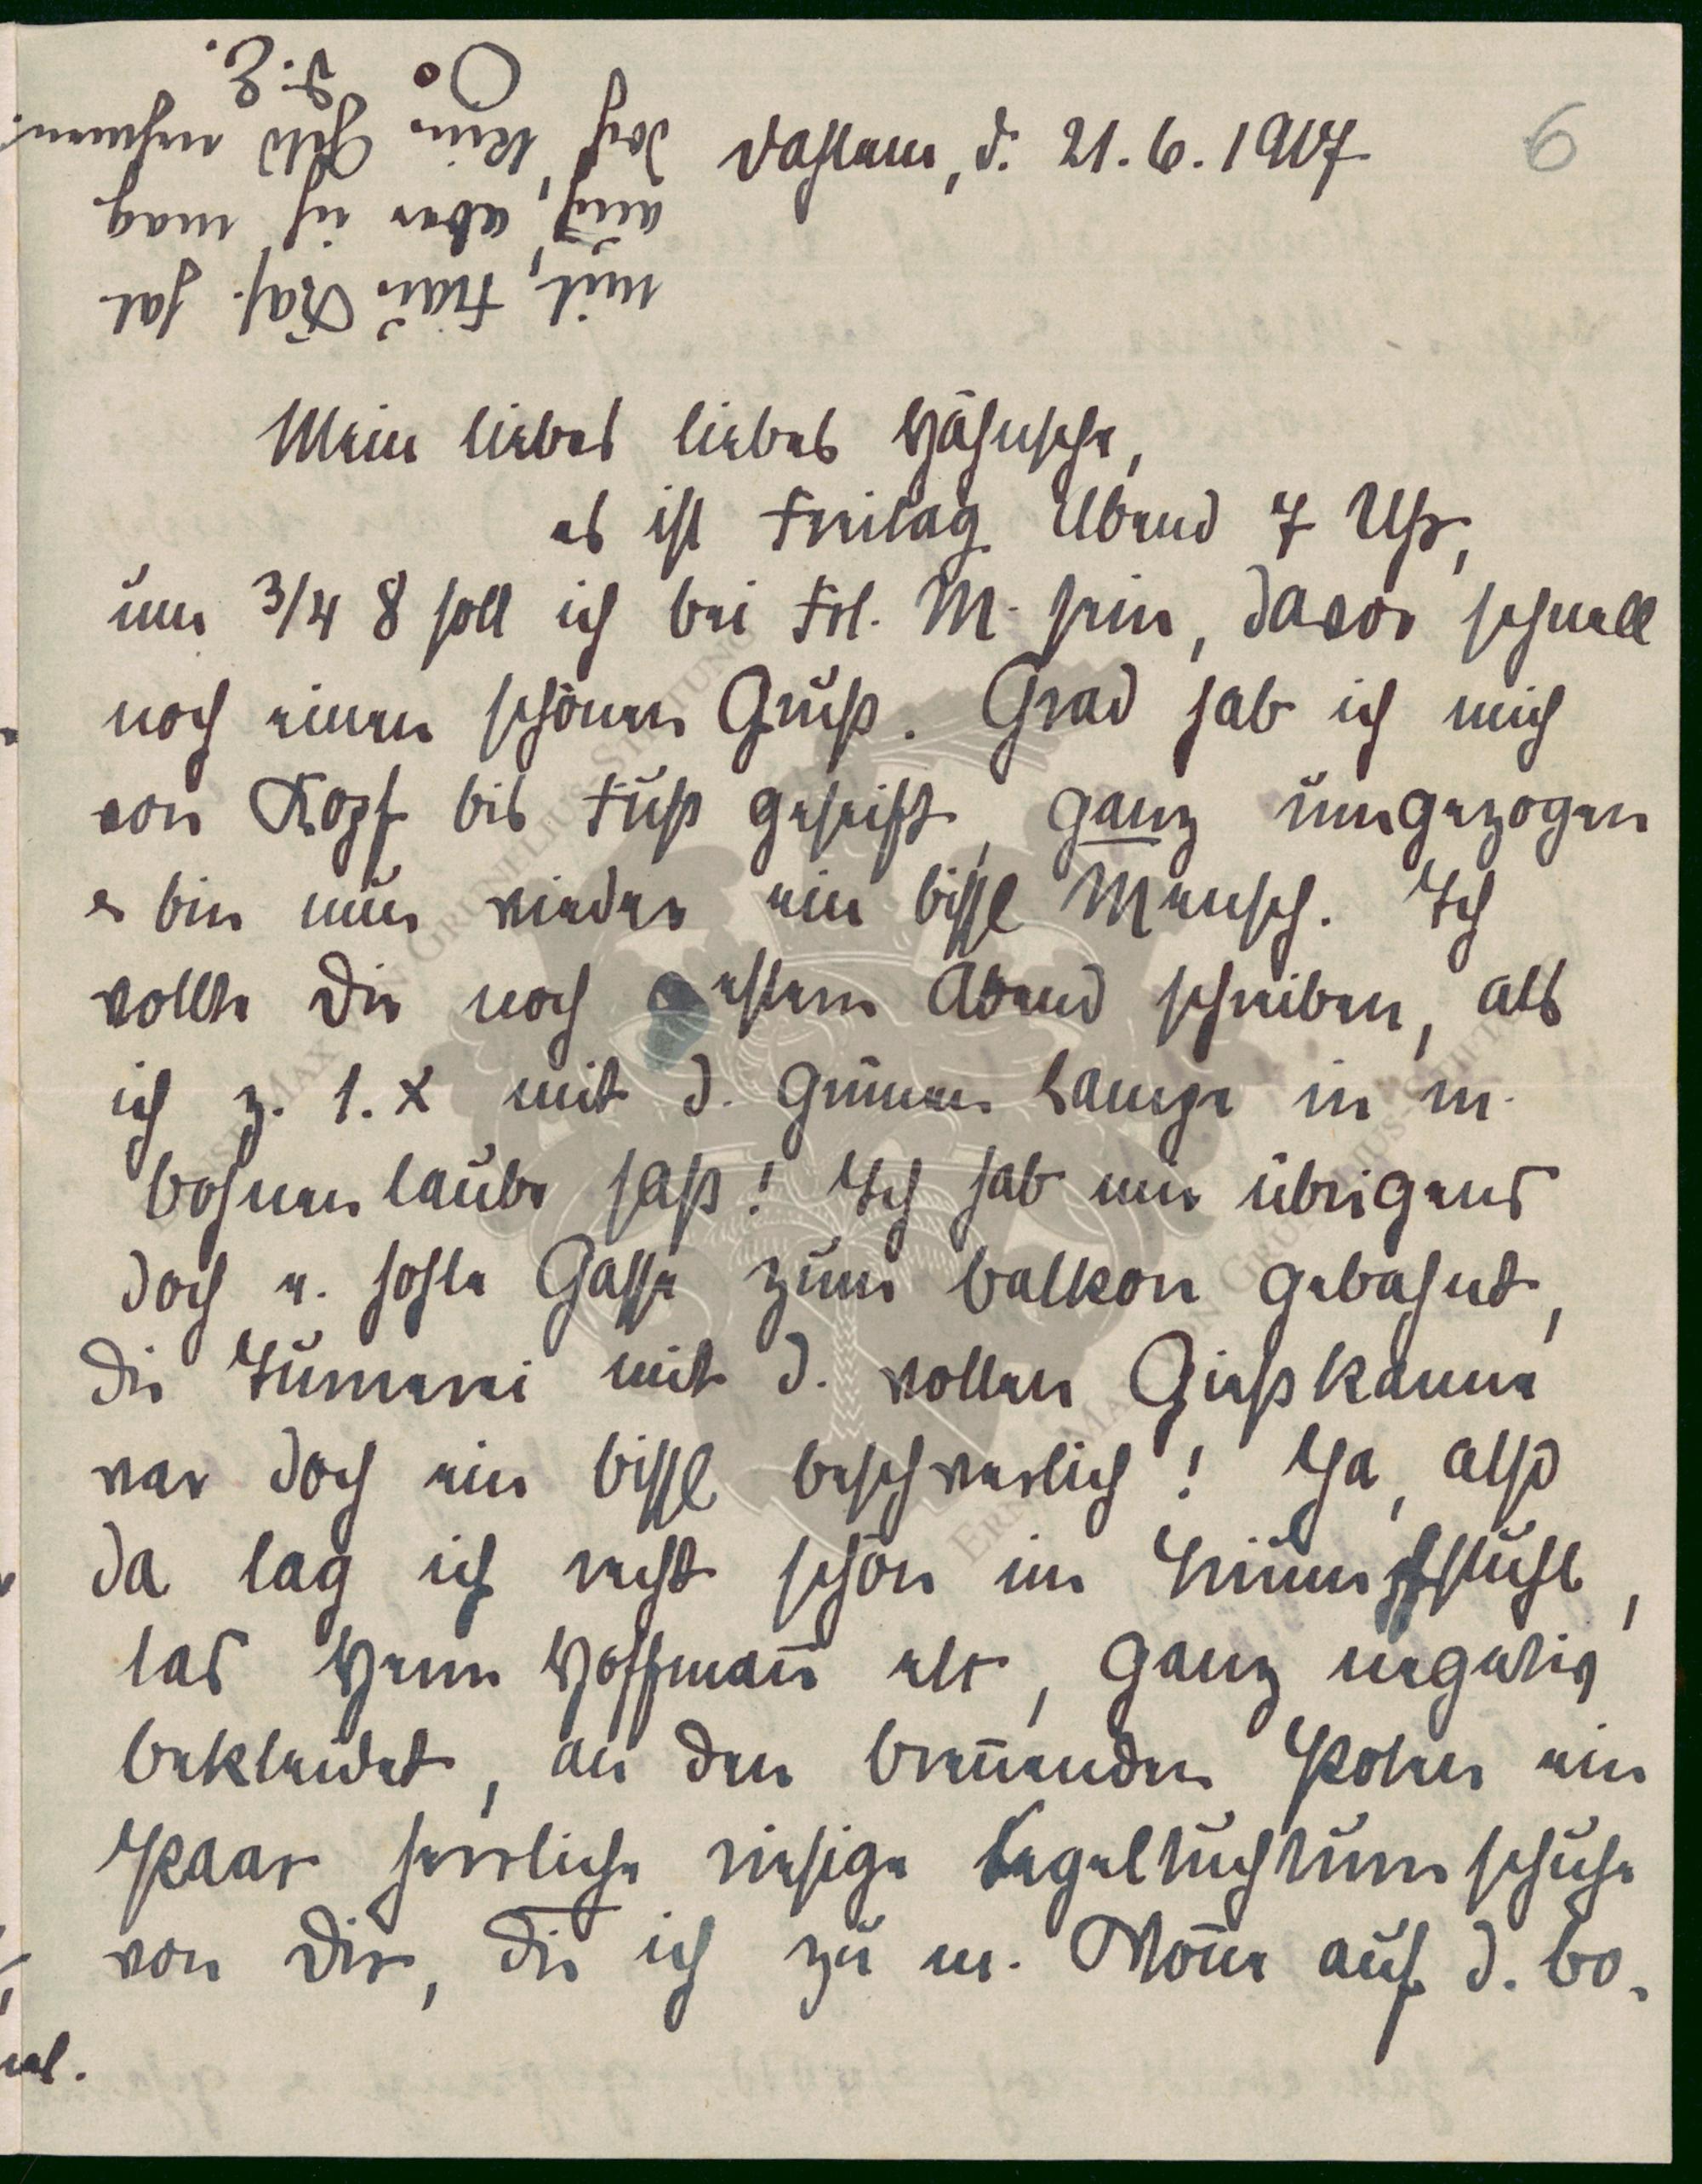 Dahlem, d. 21.6.1917
6
Mein liebes liebes Hähnsche,
es ist Freitag Abend 7 Uhr,
um 3/4 8 soll ich bei Frl. M. sein, davor schnell
noch einen schönen Gruß. Grad hab ich mich
von Kopf bis Fuß geseift, ganz umgezogen
e bin nun wieder ein bissl Mensch. Ich
wollte Dir noch gestern Abend schreiben, als
ich z. 1. x mit d. grünen Lampe in m.
Bohnenlaube saß! Ich hab mir übrigens
doch e. hohle Gasse zum Balkon gebahnt,
die Turnerei mit d. vollen Gießkanne
war doch ein bissl beschwerlich! Ja, also
da lag ich recht schön im stuhl,
las Herrn Hoffmann etc, ganz negativ
bekleidet, an den brennenden Pfoten ein
Paar herrliche riesige Segeltuchturnschuhe
von Dir, die ich zu m. Wonne auf d. Bo-
mit, Frau Kas. hat
auch, aber ich mag
doch kein Geld nehmen.
D. E.
ERNST MAX VON GRUNELIUS-STIFTUNG